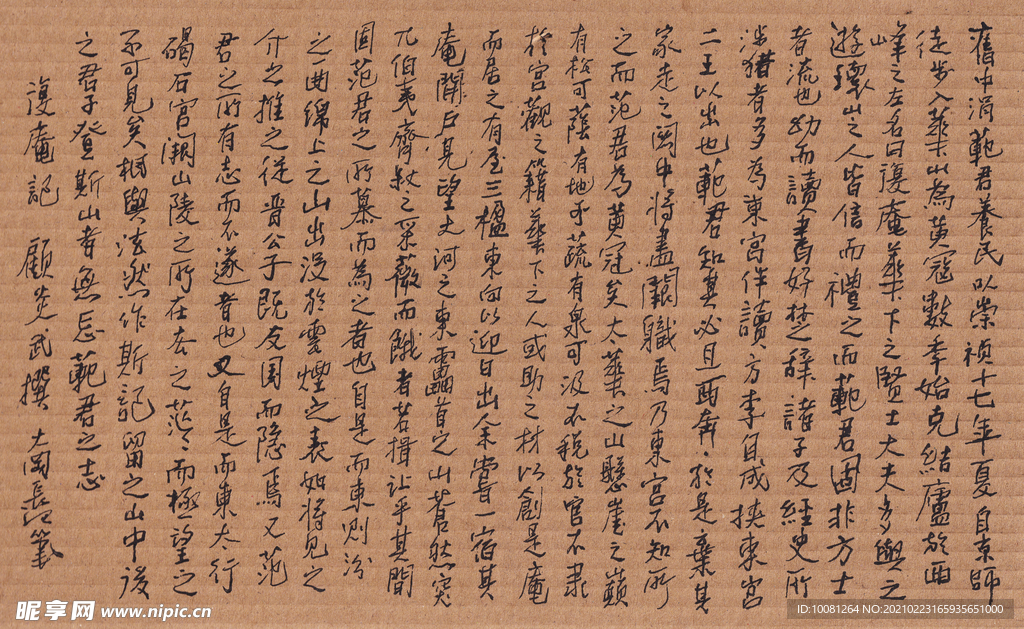 舊中涓範君養民以崇禎十七年夏自京師
徒步入華山為黃冠數年始克結廬於西
峰之左名曰復庵華下之賢士大夫多與之
遊環山之人皆信而禮之而範君固非方士
者流也幼而讀書好楚辭諸子及經史所
涉獵者多為東宮伴讀方李自成挾東宮
二王以出也範君知其必且西奔於是棄其
家走之關中將盡厥職焉乃東宮不知所
之而范君為黃冠矣太華之山懸崖之巔
有松可蔭有地可蔬有泉可汲不稅於官不隸
於宮觀之籍華下之人或助之材以創是庵
而居之有屋三楹東向以迎日出余嘗一宿其
庵開戶見望大河之東靁首之山蒼然突
兀伯夷叔齊之采薇而餓者若揖讓乎其間
固范君之所慕而為之者也自是而東則汾
之一曲綿上之山出沒於雲煙之表如將見之
介之推之從晉公子既反國而隱焉又范
君之所有志而不遂者也又自是而東太行
碣石宮闕山陵之所在去之茫々而極望之
不可見矣相與泫然作斯記留之山中後
之君子登斯山者無忘範君之志
復庵記 顧炎武撰
昵享网 www.nipic.cn
ID:10081264 NO:20210223165935651000